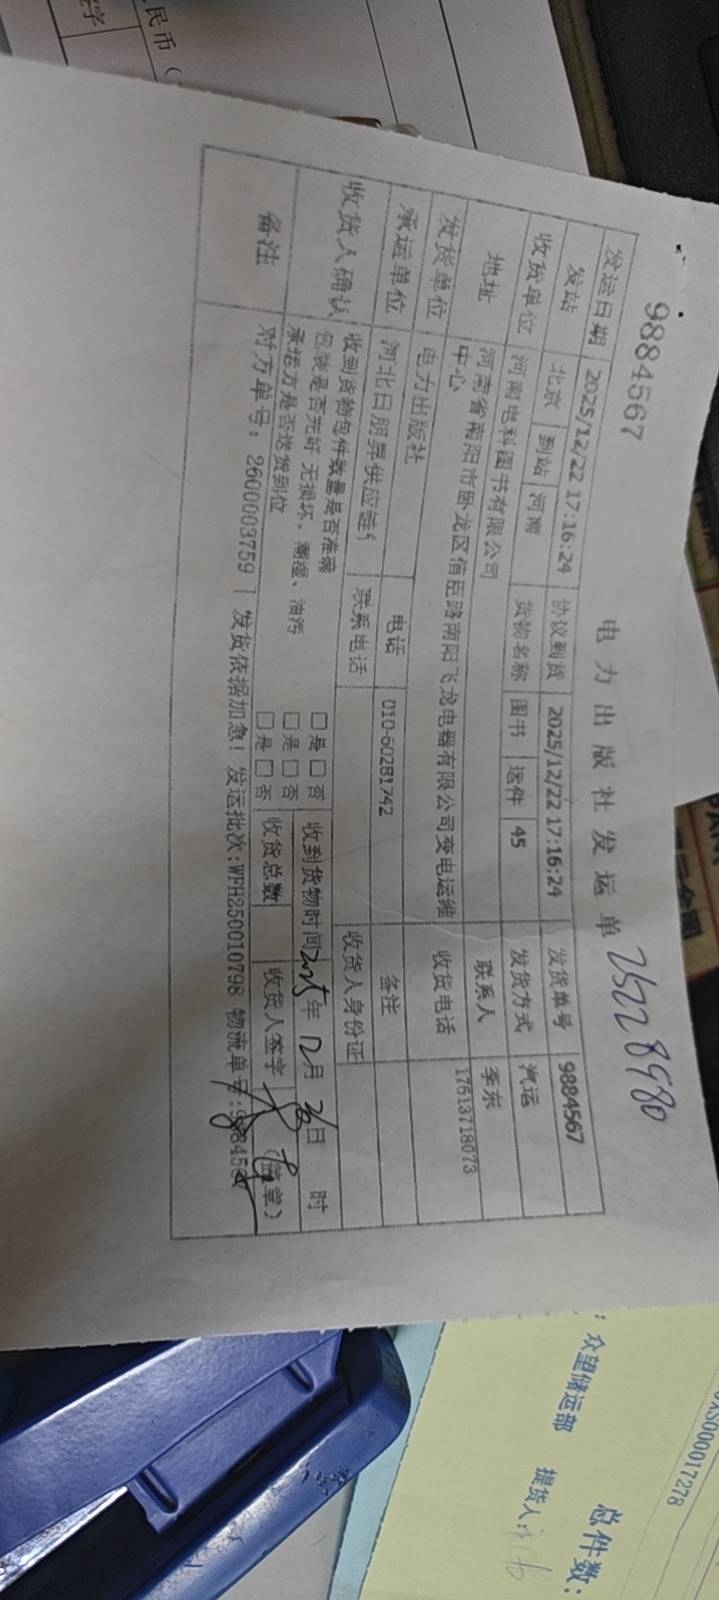 民币（
字
9884567
电力出版社发运单 25228980
发运日期 2025/12/22 17:16:24 协议到货 2025/12/22 17:16:24 发货单号 9884567
发站 北京 到站 河南 货物名称 图书 运件 45 发货方式 汽运
收货单位 河南电科图书有限公司 联系人 李东
地址 河南省南阳市卧龙区信臣路南阳飞龙电器有限公司变电运维中心 收货电话 17613718073
发货单位 电力出版社
承运单位 河北日朋昇供应链 电话 010-60281742 备注
收货人确认 联系电话 收货人身份证
收到货物包件数量是否准确 □是 □否 收到货物时间 2025年12月26日 时
包装是否完好 无损坏、潮湿、油污 □是 □否 收货总数 收货人签字 （盖章）
承托方是否送货到位 □是 □否
备注 对方单号：2600003759 发货依据加急！ 发运批次:WFH250010798 物流单号:9884567
：众望储运部
提货人：
总件数：
000017278